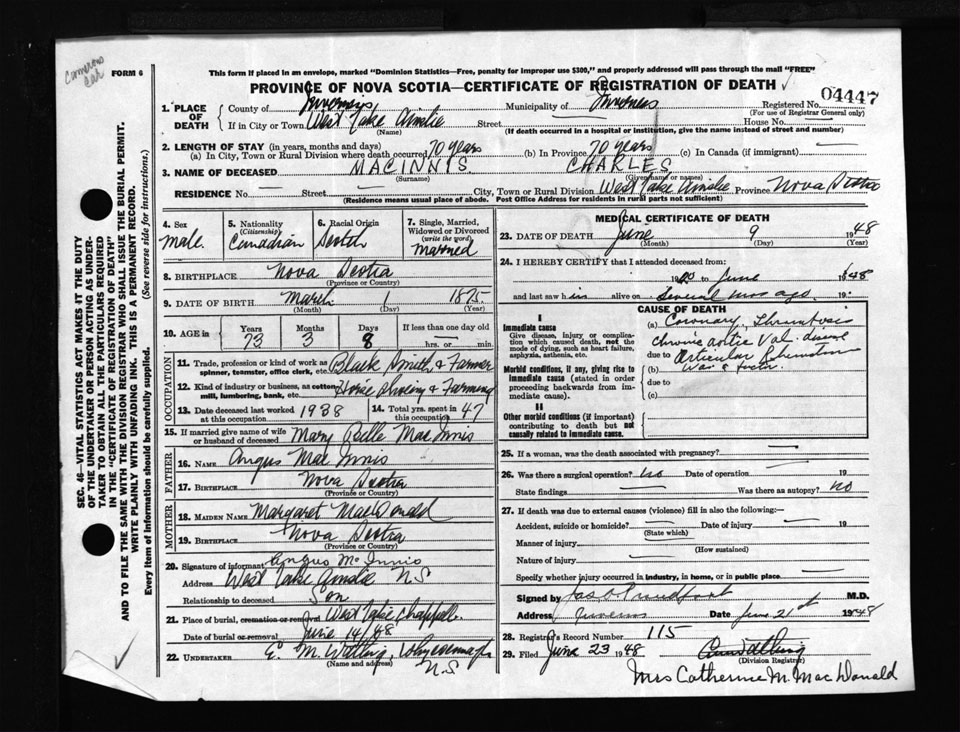 Camerons
Ear
FORM 6
This form if placed in an envelope, marked "Dominion Statistics—Free, penalty for improper use $300," and properly addressed will pass through the mail "FREE"
PROVINCE OF NOVA SCOTIA—CERTIFICATE OF REGISTRATION OF DEATH
1. PLACE OF DEATH County of Inverness Municipality of Inverness Registered No. 04447
(For use of Registrar General only)
If in City or Town West Lake Ainslie Street House No. —
(Name) (If death occurred in a hospital or institution, give the name instead of street and number)
2. LENGTH OF STAY (in years, months and days)
(a) In City, Town or Rural Division where death occurred 70 years (b) In Province 70 years (c) In Canada (if immigrant) —
3. NAME OF DECEASED MACINNIS CHARLES
(Surname) (Given name or names)
RESIDENCE No. — Street — City, Town or Rural Division West Lake Ainslie Province Nova Scotia
(Residence means usual place of abode. Post Office Address for residents in rural parts not sufficient)
4. Sex Male
5. Nationality (Citizenship) Canadian
6. Racial Origin Scotch
7. Single, Married, Widowed or Divorced (write the word) married
8. BIRTHPLACE Nova Scotia
(Province or Country)
9. DATE OF BIRTH March 1 1875
(Month) (Day) (Year)
10. AGE in Years 73 Months 3 Days 8 If less than one day old
hrs. or min.
OCCUPATION
11. Trade, profession or kind of work as spinner, teamster, office clerk, etc. Black Smith & Farmer
12. Kind of industry or business, as cotton mill, lumbering, bank, etc. Horse Shoeing & Farming
13. Date deceased last worked at this occupation 1938
14. Total yrs. spent in this occupation 47
15. If married give name of wife or husband of deceased Mary Belle MacInnis
FATHER
16. NAME Angus MacInnis
17. BIRTHPLACE Nova Scotia
(Province or Country)
MOTHER
18. MAIDEN NAME Margaret MacDonald
19. BIRTHPLACE Nova Scotia
(Province or Country)
20. Signature of informant Angus McInnis
Address West Lake Ainslie N.S
Relationship to deceased Son
21. Place of burial, cremation or removal West Lake Chappell
Date of burial or removal June 14/48
22. UNDERTAKER E. M. Watling, Whycocomagh
(Name and address) N.S
MEDICAL CERTIFICATE OF DEATH
23. DATE OF DEATH June 9 1948
(Month) (Day) (Year)
24. I HEREBY CERTIFY that I attended deceased from:
19 to June 1948
and last saw him alive on Several mos ago 19
CAUSE OF DEATH
I
Immediate cause
Give disease, injury or complication which caused death, not the mode of dying, such as heart failure, asphyxia, asthenia, etc.
(a) Coronary Thrombosis
chronic aortic Val. disease
due to Articular Rheumatism
was a factor.
Morbid conditions, if any, giving rise to immediate cause (stated in order proceeding backwards from immediate cause).
due to
(c)
II
Other morbid conditions (if important) contributing to death but not causally related to immediate cause.
25. If a woman, was the death associated with pregnancy? —
26. Was there a surgical operation? no Date of operation — 19
State findings — Was there an autopsy? no
27. If death was due to external causes (violence) fill in also the following:—
Accident, suicide or homicide? — Date of injury — 19
(State which)
Manner of injury —
(How sustained)
Nature of injury —
Specify whether injury occurred in industry, in home, or in public place —
Signed by Jas. O. Proudfoot M.D.
Address Inverness Date June 21st 1948
28. Registrar's Record Number 115
29. Filed June 23 1948
(Division Registrar)
Mrs Catherine M. MacDonald
SEC. 46—VITAL STATISTICS ACT MAKES IT THE DUTY
OF THE UNDERTAKER OR PERSON ACTING AS UNDER-
TAKER TO OBTAIN ALL THE PARTICULARS REQUIRED
IN THE "CERTIFICATE OF REGISTRATION OF DEATH"
AND TO FILE THE SAME WITH THE DIVISION REGISTRAR WHO SHALL ISSUE THE BURIAL PERMIT.
WRITE PLAINLY WITH UNFADING INK. THIS IS A PERMANENT RECORD.
Every item of information should be carefully supplied. (See reverse side for instructions.)